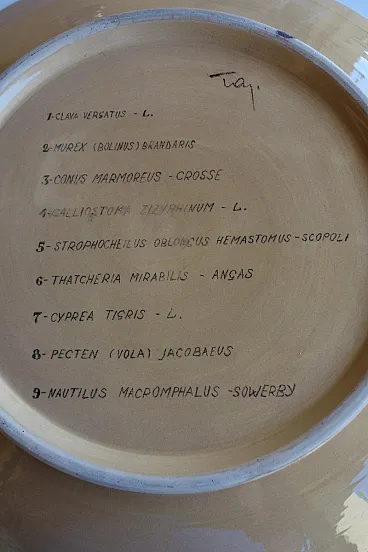 1-CLAVA VERSATUS - L.
2-MUREX (BOLINUS) BRANDARIS
3-CONUS MARMOREUS - CROSSE
4-CALLIOSTOMA ZIZYPHINUM - L.
5-STROPHOCHEILUS OBLONGUS HEMASTOMUS-SCOPOLI
6-THATCHERIA MIRABILIS - ANGAS
7-CYPREA TIGRIS - L.
8-PECTEN (VOLA) JACOBAEUS
9-NAUTILUS MACROMPHALUS -SOWERBY